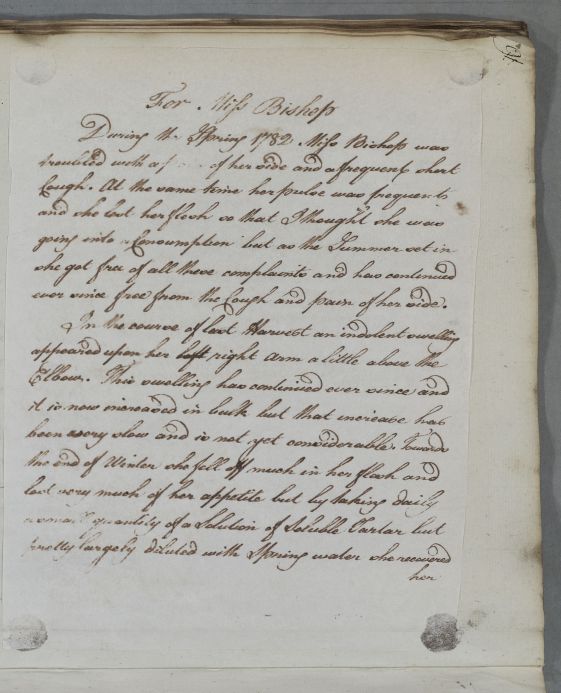 For Miss Bishop
During the Spring 1782 Miss Bishop was
troubled with a of her side and a frequent short
Cough. At the same time her pulse was frequent
and she lost her flesh so that I thought she was
going into a Consumption but as the Summer set in
she got free of all these complaints and has continued
ever since free from the Cough and pain of her side.
In the course of last Harvest an indolent swelling
appeared upon her left right arm a little above the
Elbow. This swelling has continued ever since and
it is now increased in bulk but that increase has
been very slow and is not yet considerable. Towards
the end of Winter she fell off much in her flesh and
lost very much of her appetite but by taking daily
a small quantity of a Solution of Soluble Tartar but
pretty largely diluted with Spring water she recovered
her